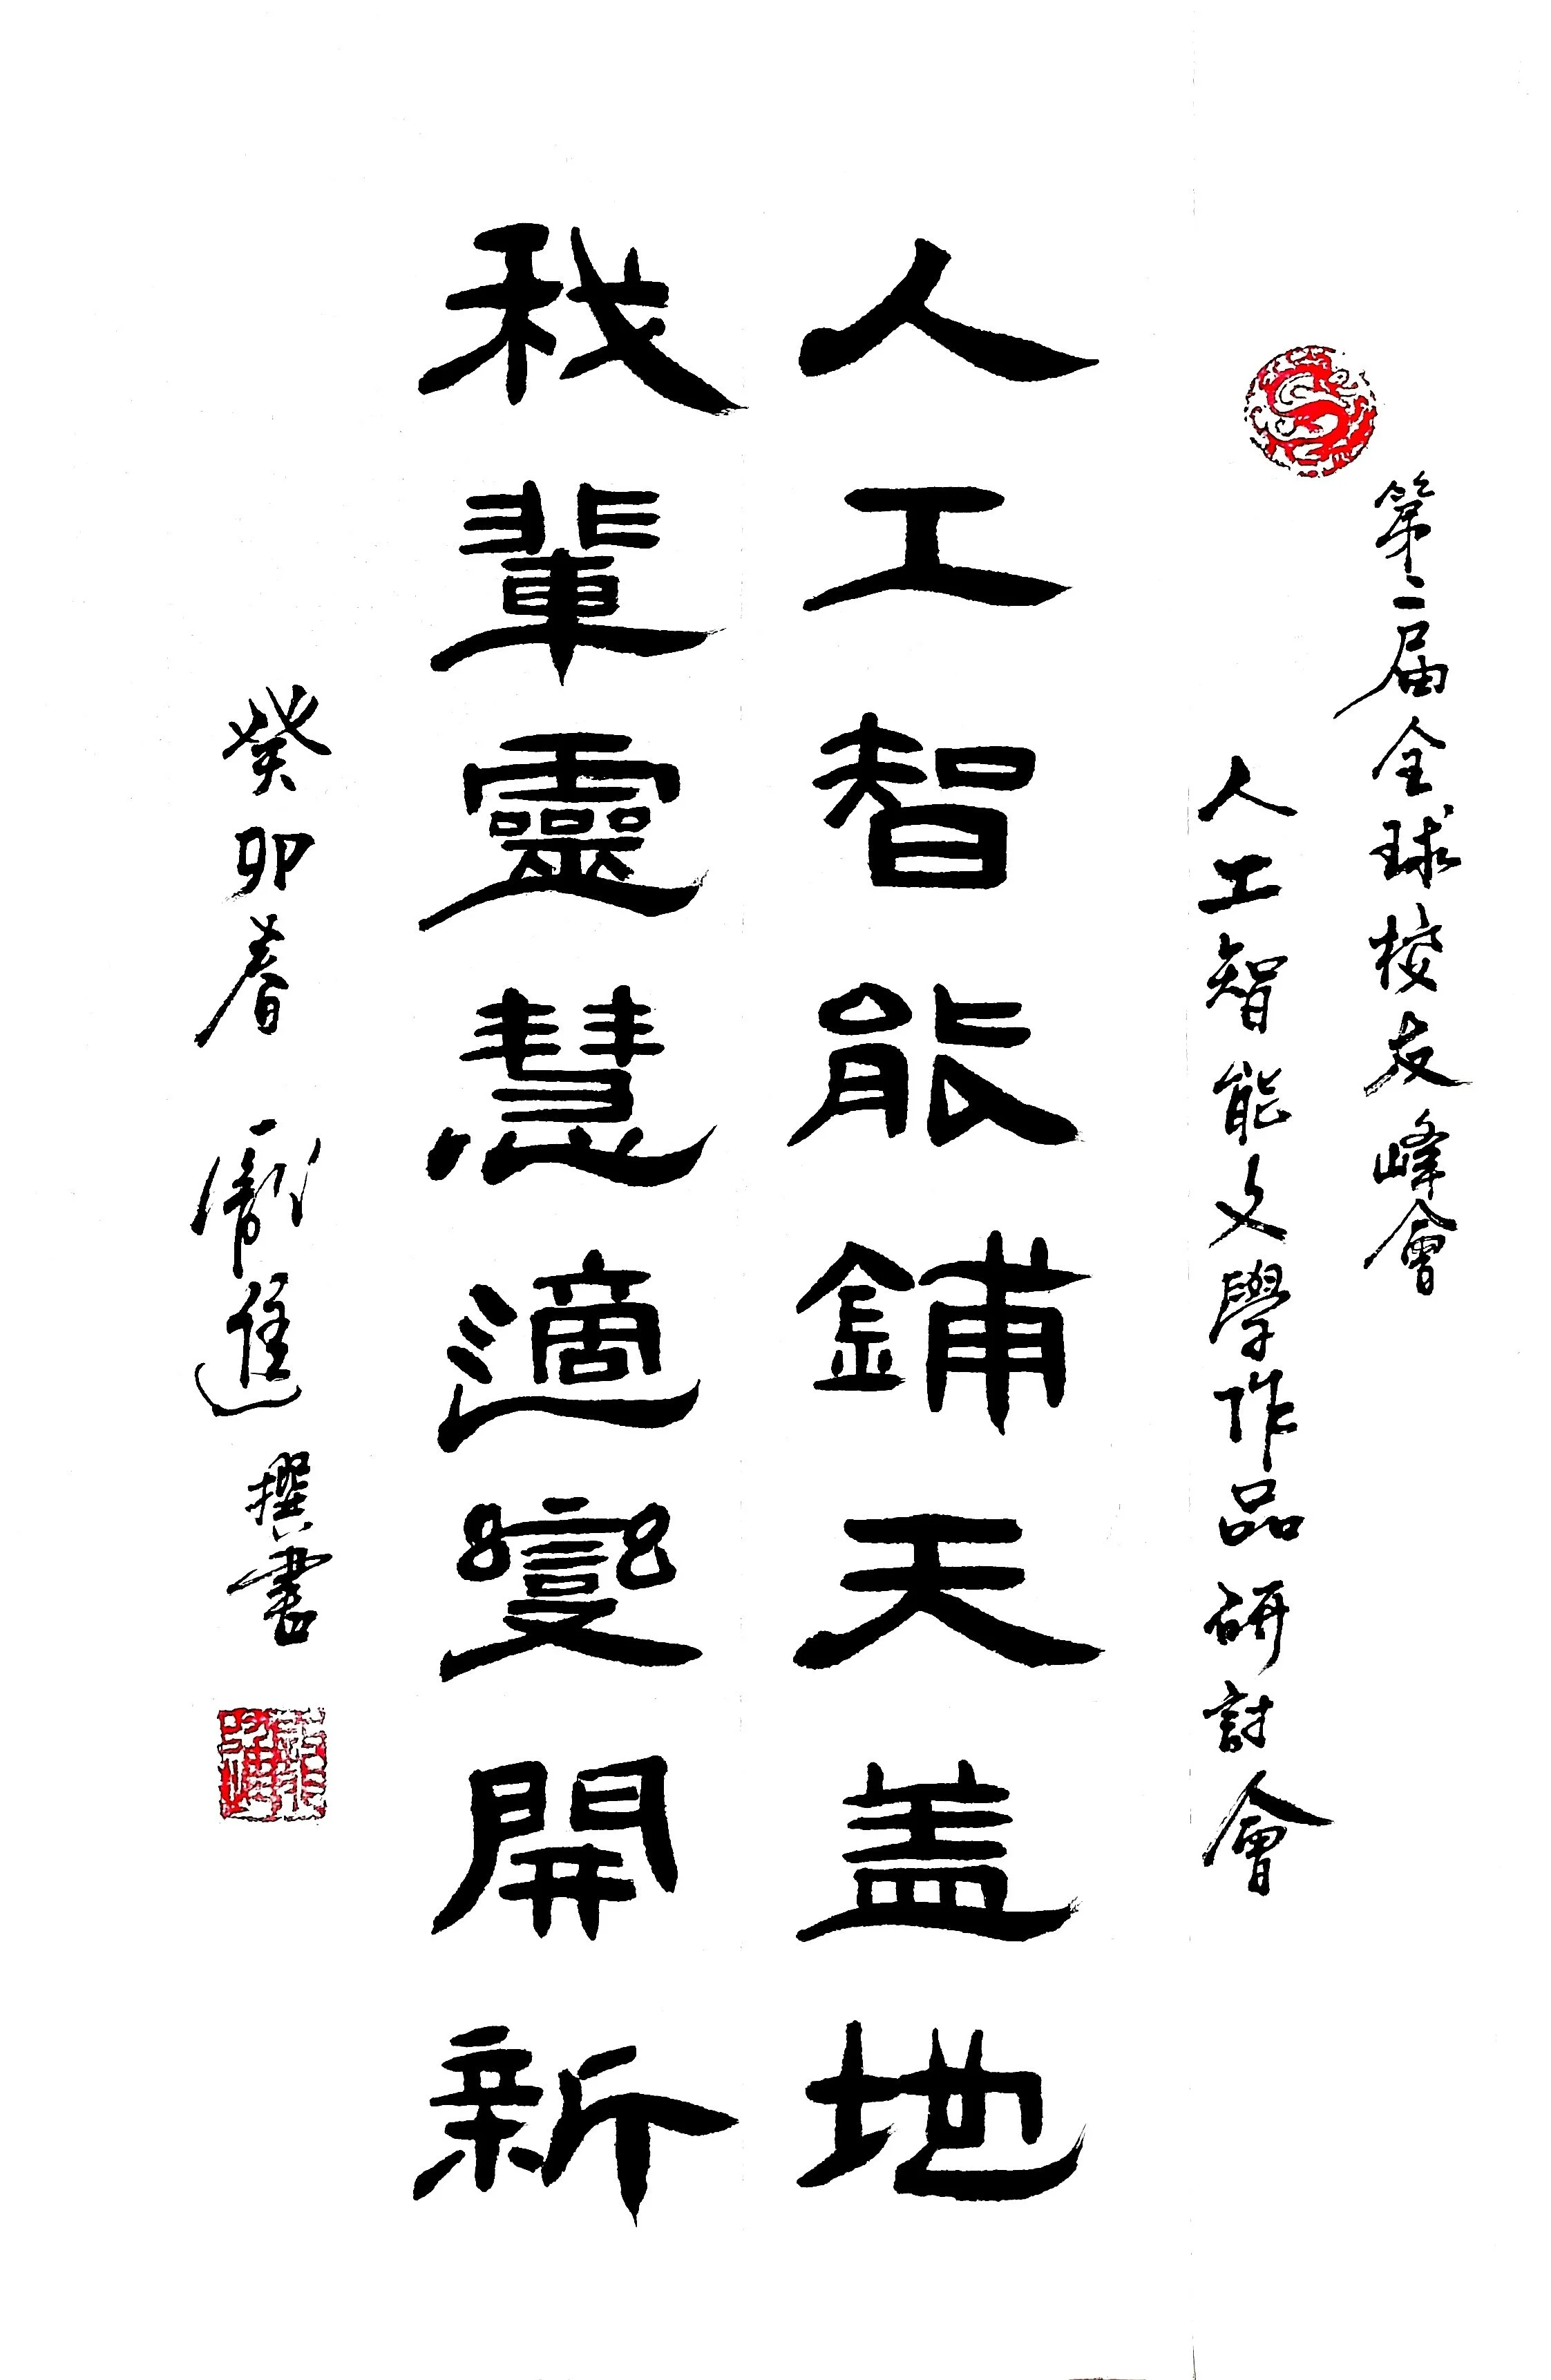 第二届全球校友峰會
人工智能文學作品研討會
人工智能鋪天盖地
我輩靈慧適變開新
癸卯春 龐進 撰書